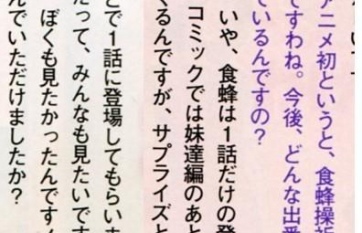 アニメ初というと、食蜂操祈
ですわね。今後、どんな出番
ているんですの?
いや、食蜂は1話だけの発
コミックでは妹達編のあと
くるんですが、サプライズと
とで1話に登場してもらいま
だって、みんなも見たいです
ぼくも見たかったんですん
んでいただけましたか?